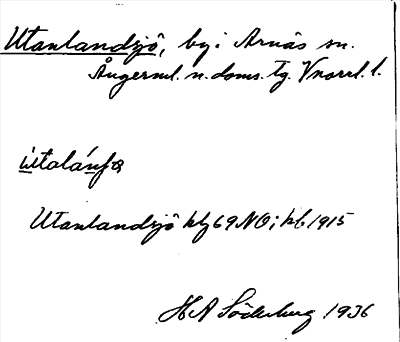 Utanlandsjö, by i Arnäs sn.
Ångerml. n. doms. tg. Vnorrl. l.
Utanlandsjö kbl 69 NO; kb 1915
H A Söderberg 1936